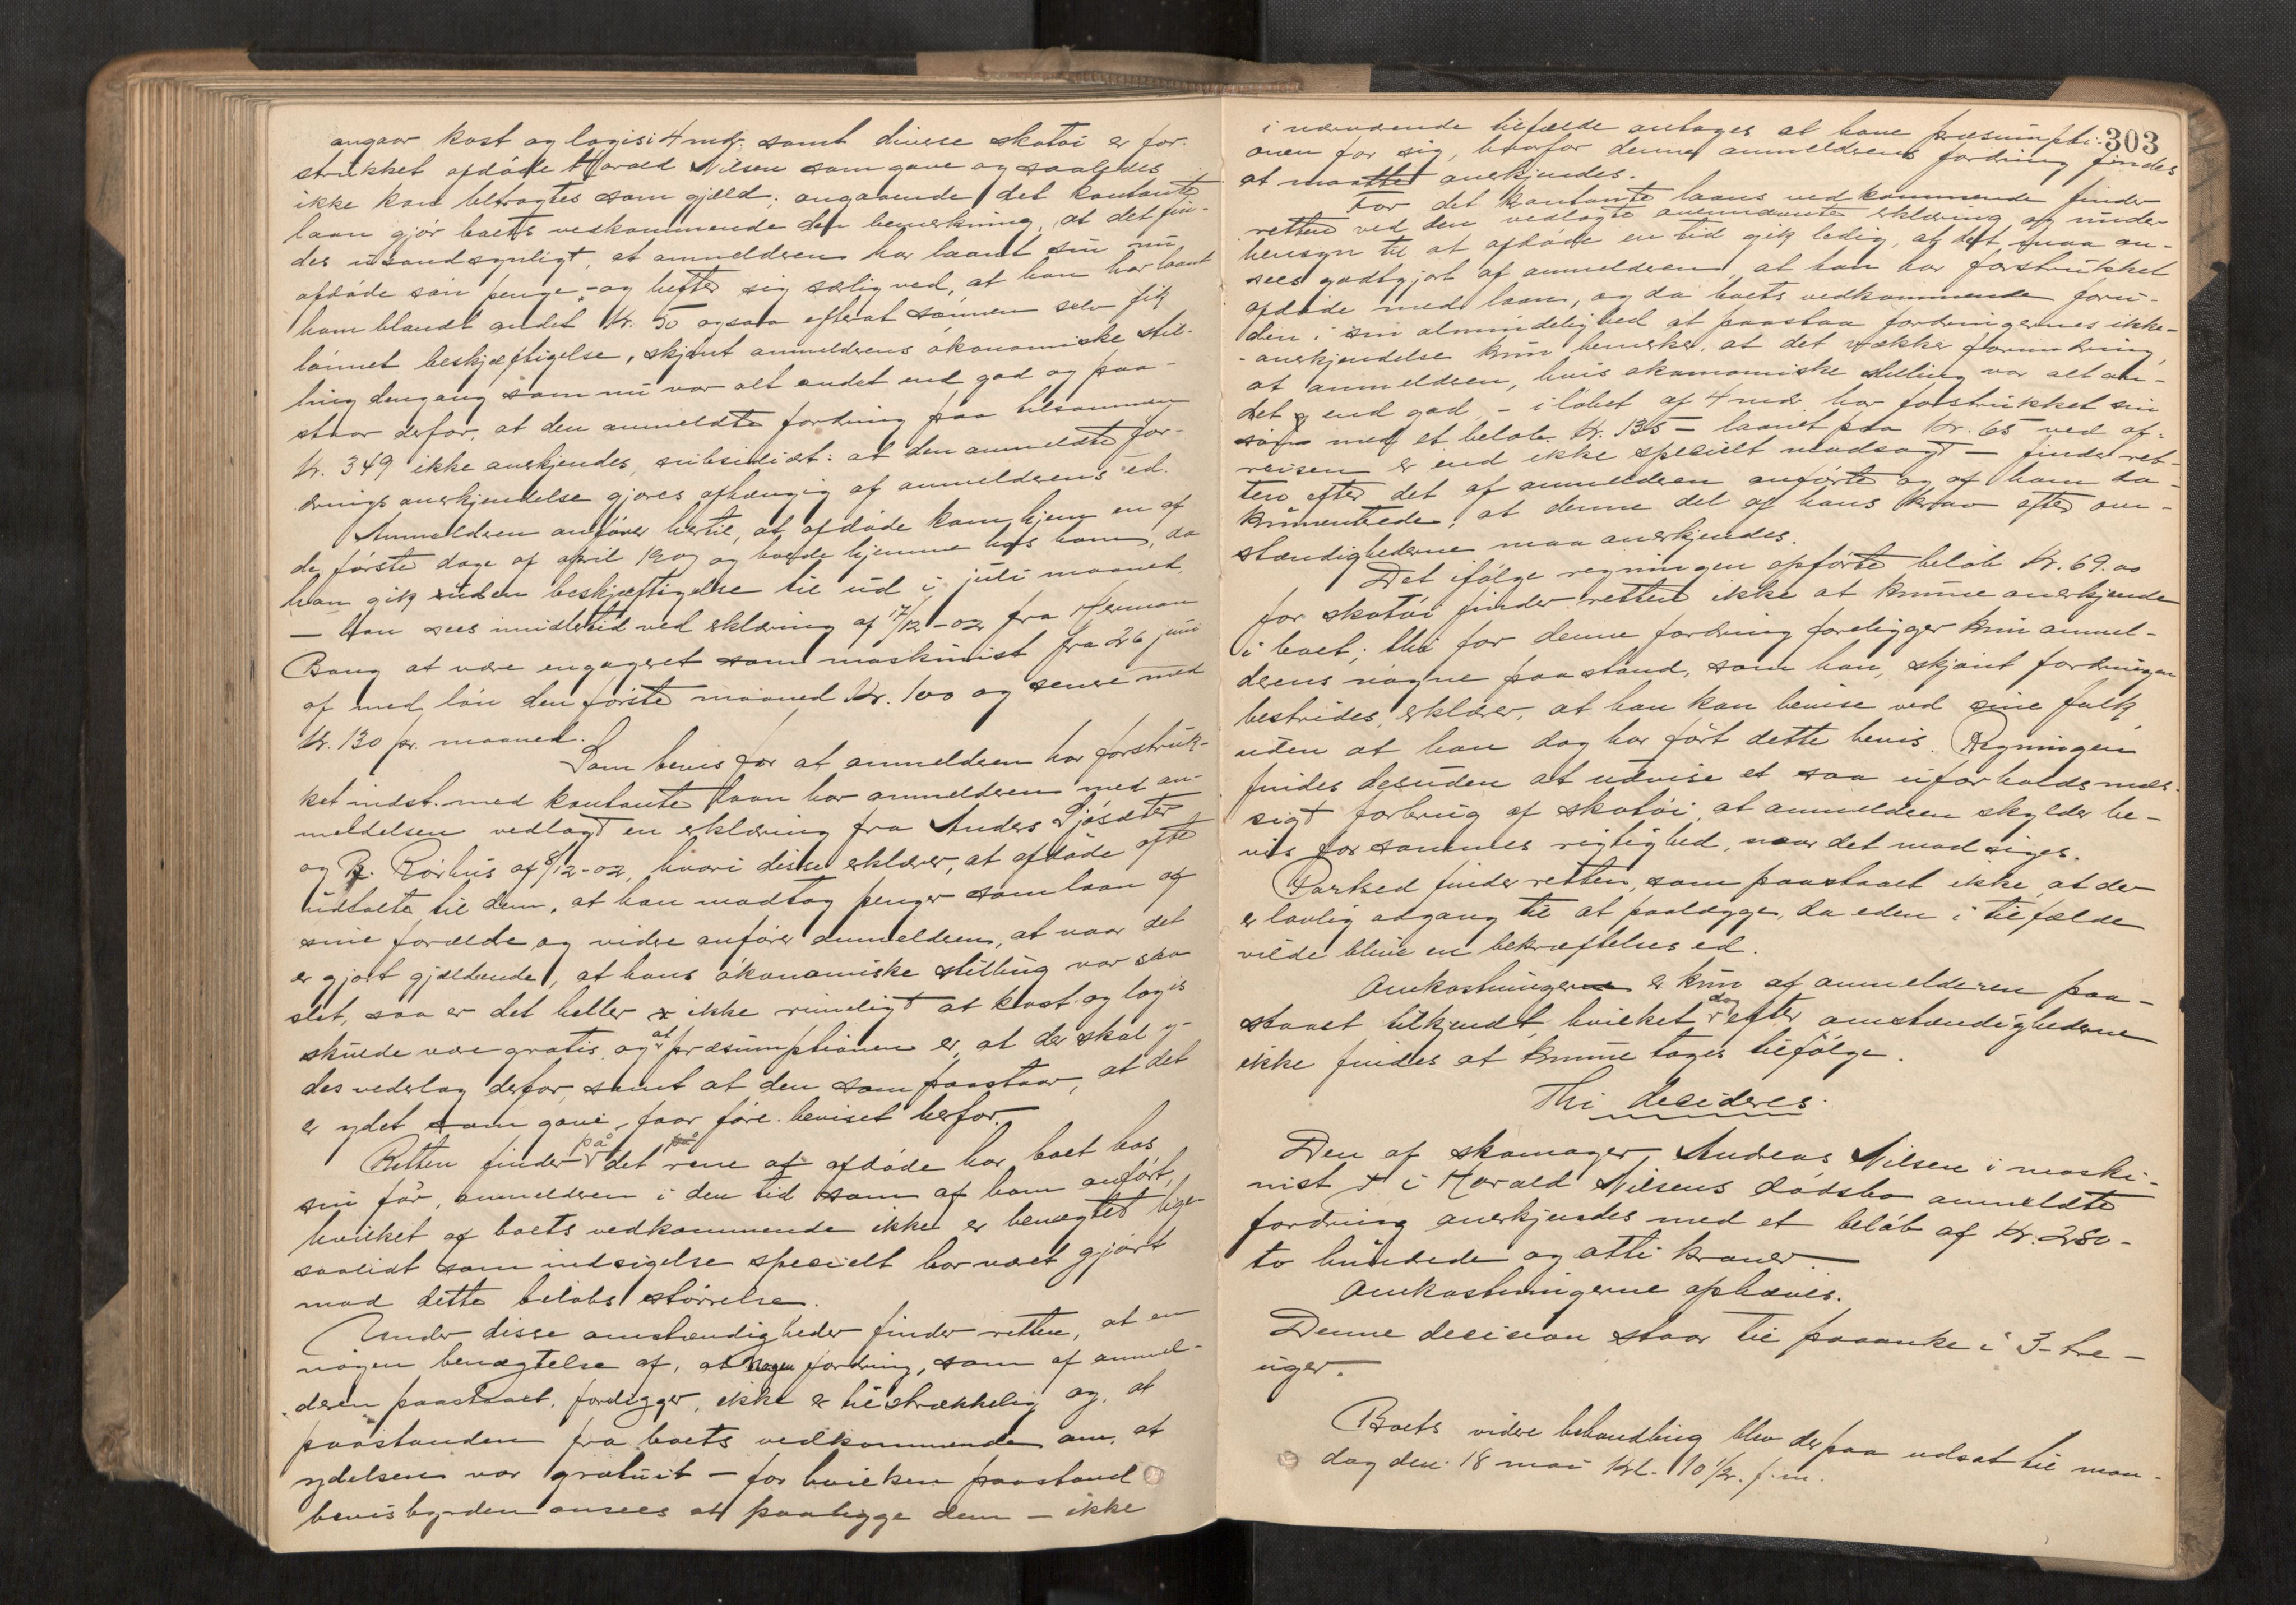 angaar kost og logis i 4 mdr. samt diverse skotøi er for-
strukket afdøde Harald Nilsen som gave og saaledes
ikke kan betragtes som gjæld; angaaende det kontante
laan gjør boets vedkommende den bemerkning, at det fin-
des usandsynligt, at anmelderen har laant sin nu
afdøde søn penge, og hefter sig særlig ved, at han har laant
ham blandt andet Kr. 50 ogsaa efterat sønnen selv fik
lønnet beskjæftigelse, skjønt anmelderens økonomiske stil-
ling dengang som nu var alt andet end god og paa-
staar derfor, at den anmeldte fordring paa tilsammen
Kr. 349 ikke anerkjendes, subsidiært: at den anmeldte for-
drings anerkjendelse gjøres afhængig af anmelderens ed.
Anmelderen anfører hertil, at afdøde kom hjem en af
de første dage af april 1902 og boede hjemme hos ham, da
han gik uden beskjæftigelse til ud i juli maaned,
— han sees imidlertid ved erklæring af 17/12-02 fra Herman
Bang at være engageret som maskinist fra 26 juni
af med løn den første maaned Kr. 100 og senere med
Kr. 130 pr. maaned.
Som bevis for at anmelderen har forstruk-
ket indst. med kontante laan har anmelderen med an-
meldelsen vedlagt en erklæring fra Anders Sjøsæter
og B. Rørhus af 8/12-02, hvori disse erklærer, at afdøde ofte
udtalte til dem, at han modtog penger som laan af
sine forældre og videre anfører anmelderen, at naar det
er gjort gjældende, at hans økonomiske stilling var saa
slet, saa er det heller ikke rimeligt at kost og logis
skulde være gratis, og at præsumptionen er, at der skal y-
des vederlag derfor, samt at den som paastaar, at det
er ydet som gave, faar føre beviset herfor.
Retten finder på det rene at afdøde har boet hos
sin far, anmelderen i den tid som af ham anført,
hvilket af boets vedkommende ikke er benægtet lige-
saalidt som indsigelse specielt har været gjort
mod dette beløbs størrelse.
Under disse omstændigheder finder retten, at en
nøgen benægtelse af, at nogen fordring, som af anmel-
deren paastaaet, foreligger, ikke er tilstrækkelig og at
paastanden fra boets vedkommende om, at
ydelsen var gratuit — for hvilken paastand
bevisbyrden ansees at paaligge dem — ikke
303
i nærværende tilfælde antages at have præsumpti-
onen for sig, hvorfor denne anmelderens fordring findes
at maatte anerkjendes.
For det kontante laans vedkommende finder
retten ved den vedlagte ovennævnte erklæring og under
hensyn til at afdøde en tid gik ledig, at det maa an-
sees godtgjort af anmelderen, at han har forstrukket
afdøde med laan, og da boets vedkommende foru-
den i sin almindelighed at paastaa fordringernes ikke-
-anerkjendelse kun bemerker, at det vækker forundring,
at anmelderen, hvis økonomiske stilling var alt an-
det end god, — i løbet af 4 mdr. har forstrukket sin
søn med et beløb Kr. 135 — laanet paa Kr. 65 ved af-
reisen er end ikke specielt modsagt — finder ret-
ten efter det af anmelderen anførte og af ham do-
kumenterede, at denne del af hans krav efter om-
stændighederne maa anerkjendes.
Det ifølge regningen opførte beløb Kr. 69.00
for skotøi finder retten ikke at kunne anerkjende
i boet; thi for denne fordring foreligger kun anmel-
derens nøgne paastand, som han, skjønt fordringen
bestrides, erklærer, at han kan bevise ved sine folk,
uden at han dog har ført dette bevis. Regningen
findes desuden at udvise et saa uforholdsmæs-
sigt forbrug af skotøi, at anmelderen skylder be-
vis for sammes rigtighed, naar det modsiges.
Partsed finder retten, som paastaaet ikke, at der
er lovlig adgang til at paalægge, da eden i tilfælde
vilde blive en bekræftelsesed.
Omkostningerne er kun af anmelderen paa-
staaet tilkjendt, hvilket dog efter omstændighederne
ikke findes at kunne tages tilfølge.
Thi decideres:
Den af skomager Andreas Nilsen i maski-
nist Harald Nilsens dødsbo anmeldte
fordring anerkjendes med et beløb af Kr. 280 -
to hundrede og otti kroner. —
Omkostningerne ophæves.
Denne decision staar til paaanke i 3 - tre -
uger.
Boets videre behandling blev derpaa udsat til man-
dag den 18 mai kl. 10 1/2 f.m.